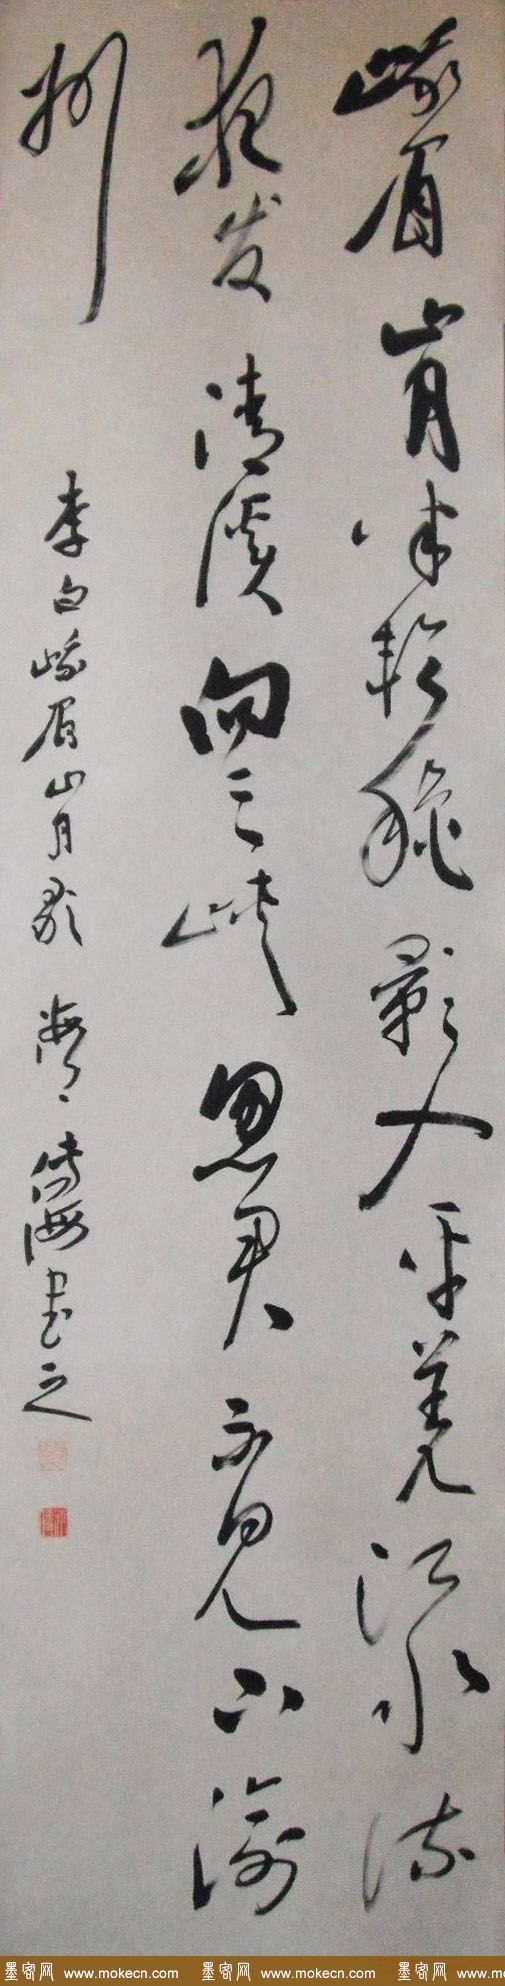 峨眉山月半轮秋影入平羌江水流
夜发清溪向三峡思君不见下渝
州
李白峨眉山月歌 海书之
墨客网 www.mokecn.com 墨客网 www.mokecn.com 墨客网 www.mokecn.com